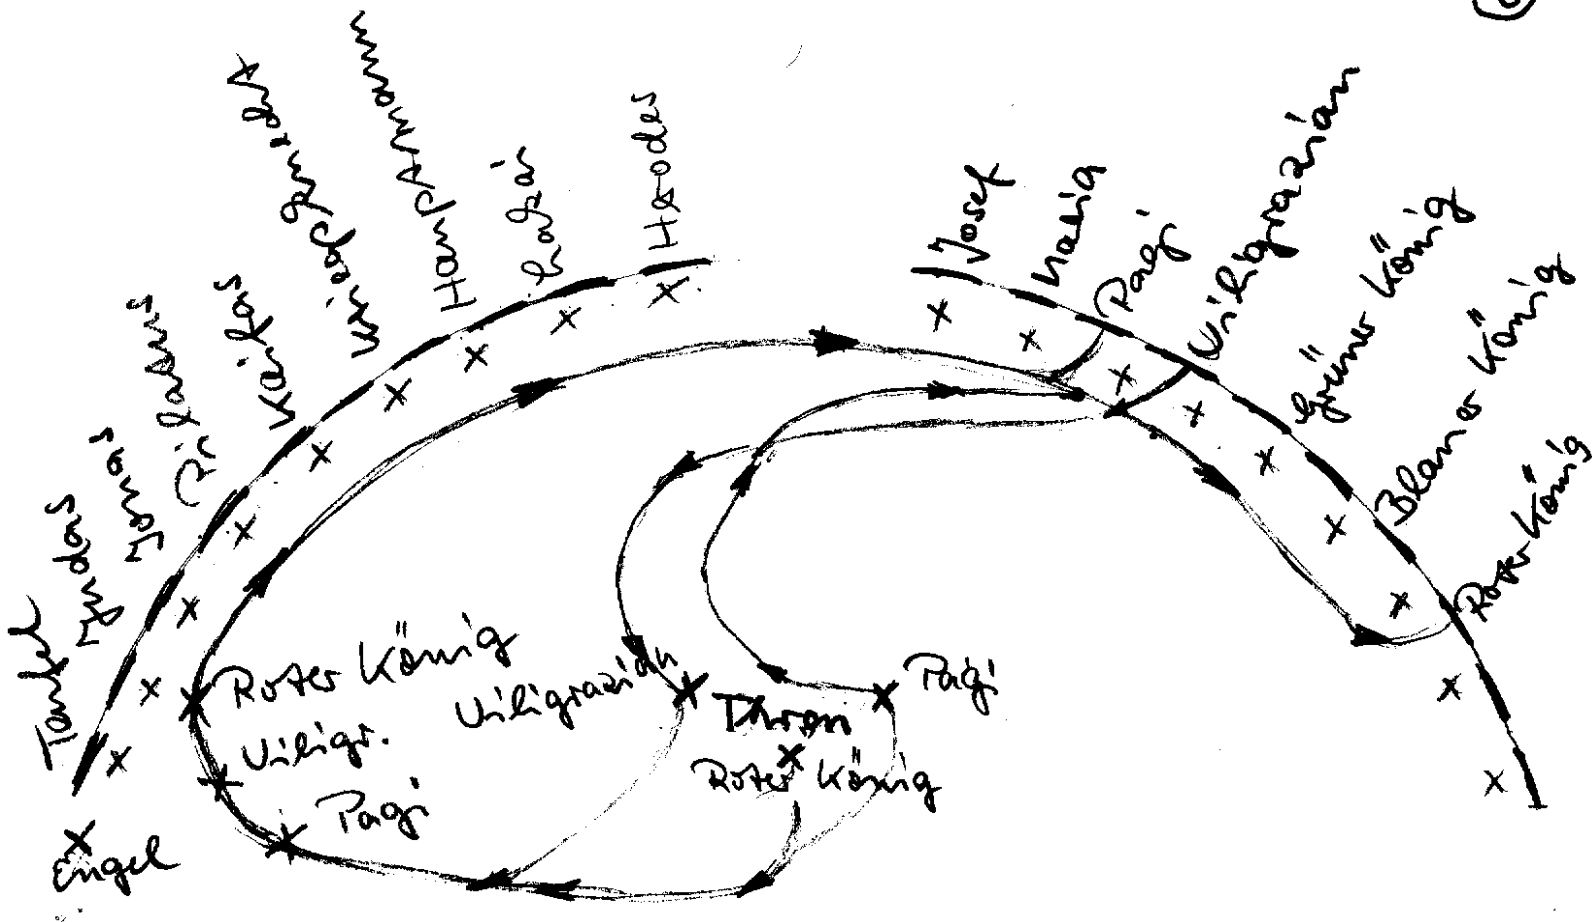 Teufel
Judas
Jonas
Pilatus
Kaifas
Kriegsknecht
Hauptmann
Lakai
Herodes
Josef
Maria
Pagi
Viligrazian
Grüner König
Blauer König
Roter König
Roter König
Viligr.
Pagi
Viligrazian
Thron
Roter König
Pagi
Engel